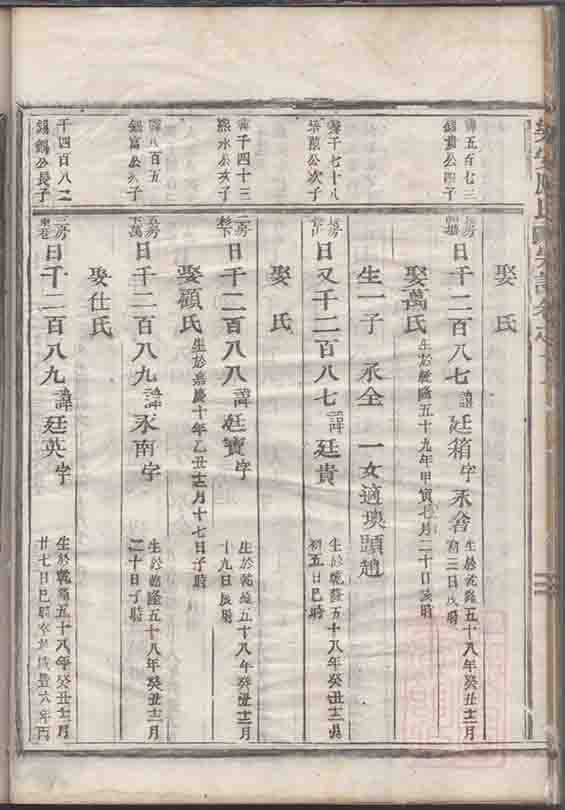 娶 氏
五百七三
公四子
日千二百八七 諱廷箱字永畣
生於乾隆五十八年癸丑十二月
初三日辰時
娶萬氏 生於乾隆五十九年甲寅七月二十日亥時
生一子 永全 一女適墺頭趙
千七十八
公次子
日又千二百八七 諱廷貴
生於乾隆五十八年癸丑十二月
初五日巳時
娶 氏
千四十三
熙水公次子
日千二百八八 諱廷寶字
生於乾隆五十八年癸丑十二月
十九日辰時
娶顧氏 生於嘉慶十年乙丑十二月十七日子時
八百五
錫富公次子
五房
下萬
日千二百八九 諱永南字
生於乾隆五十八年癸丑十二月
二十日子時
娶仕氏
千四百八二
錫錫公長子
三房
東巷
日千二百八九 諱廷英字
生於乾隆五十八年癸丑十二月
廿七日巳時卒於咸豊六年丙